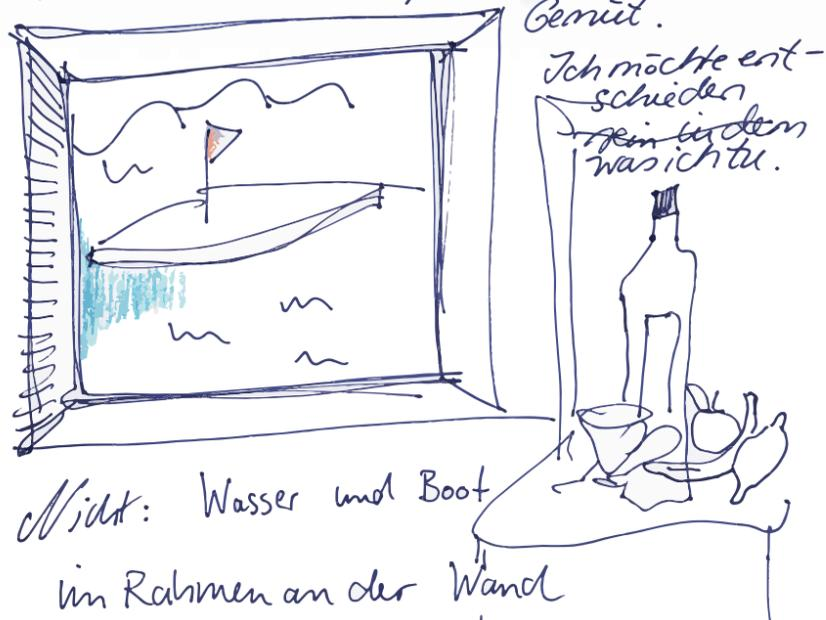 Gemüt.
Ich möchte ent-
schieden
sein in dem
was ich tu.
Nicht: Wasser und Boot
im Rahmen an der Wand